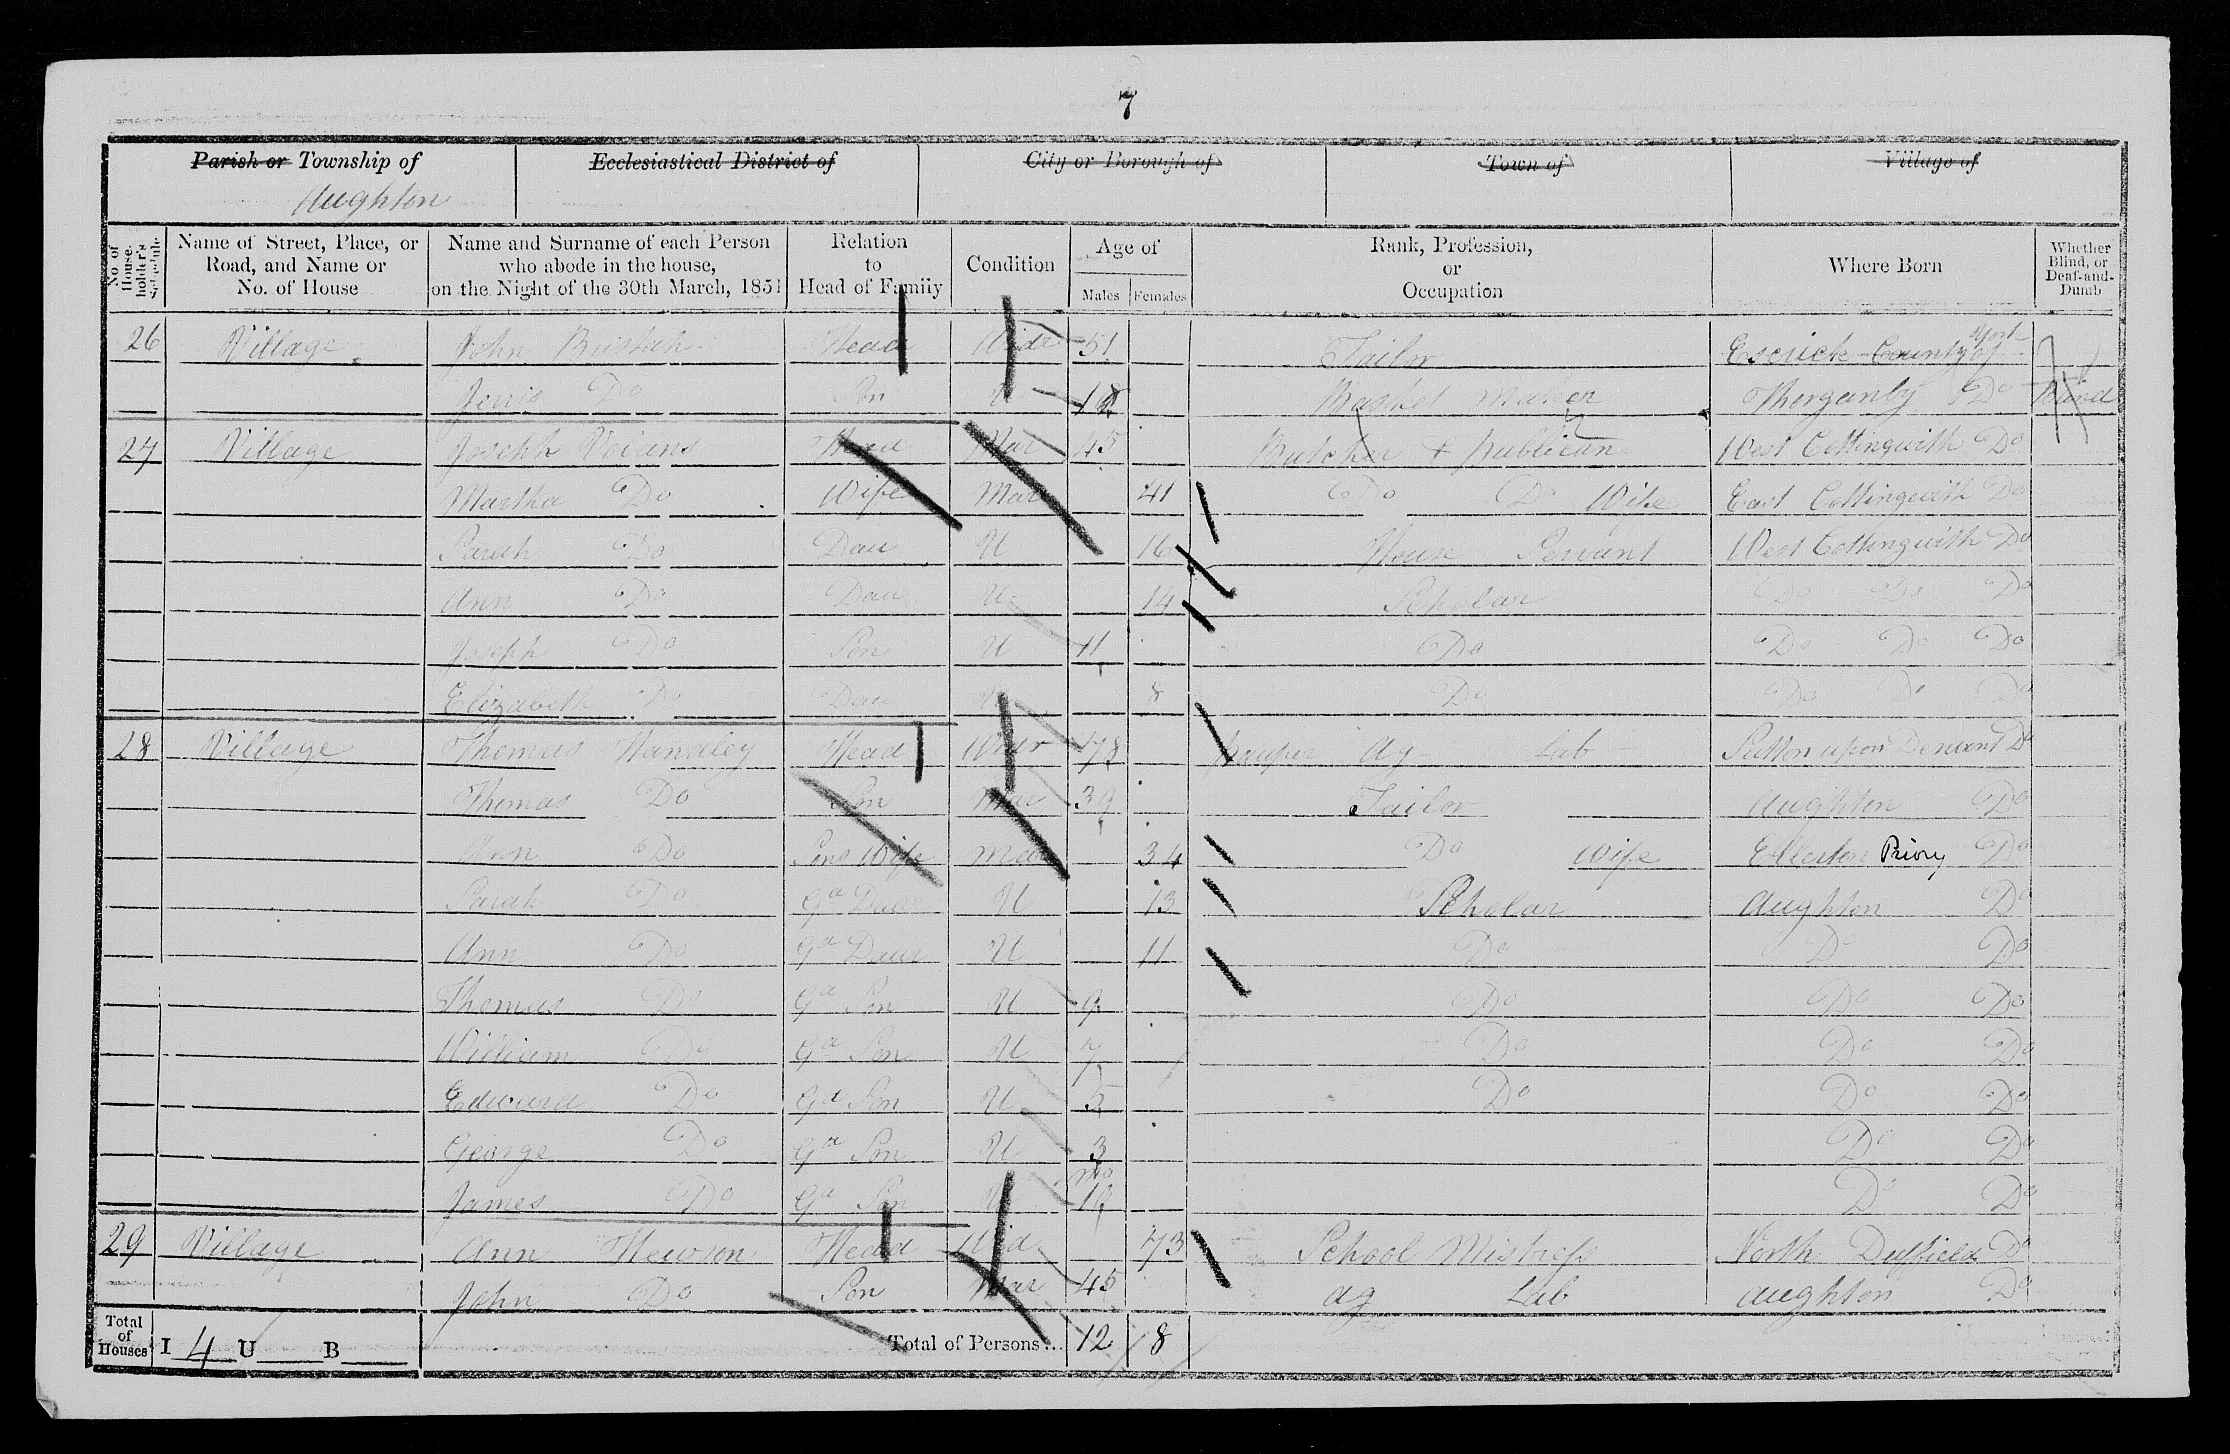 7
Parish or Township of Ecclesiastical District of City or Borough of Town of Village of
Aughton
No. of House-holder's Schedule Name of Street, Place, or Road, and Name or No. of House Name and Surname of each Person who abode in the house, on the Night of the 30th March, 1851 Relation to Head of Family Condition Age of Males Females Rank, Profession, or Occupation Where Born Whether Blind, or Deaf-and-Dumb
26 Village John Head Widr 51 Tailor Escrick County of York
Do Son U 18 Basket Maker Thorganby Do Blind
27 Village Joseph Head Mar 45 Butcher + Publican West Cottingwith Do
Martha Do Wife Mar 41 Do Do Wife East Cottingwith Do
Sarah Do Dau U 16 House Servant West Cottingwith Do
Ann Do Dau U 14 Scholar Do Do Do
Joseph Do Son U 11 Do Do Do Do
Elizabeth Do Dau U 8 Do Do Do Do
28 Village Thomas Handley Head Widr 78 Pauper Ag Lab Sutton upon Derwent Do
Thomas Do Son Mar 39 Tailor Aughton Do
Ann Do Sons Wife Mar 34 Do Wife Ellerton Priory Do
Sarah Do Gd Daur U 13 Scholar Aughton Do
Ann Do Gd Daur U 11 Do Do Do
Thomas Do Gd Son U 9 Do Do Do
William Do Gd Son U 7 Do Do Do
Edward Do Gd Son U 5 Do Do Do
George Do Gd Son U 3 Do Do
James Do Gd Son U mo 10 Do Do
29 Village Ann Hewson Head Wid 73 School Mistress North Duffield Do
John Do Son Mar 45 Ag Lab Aughton Do
Total of Houses I 4 U B Total of Persons... 12 8